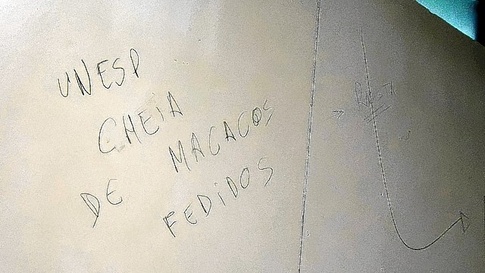 UNESP
CHEIA
DE MACACOS
FEDIDOS